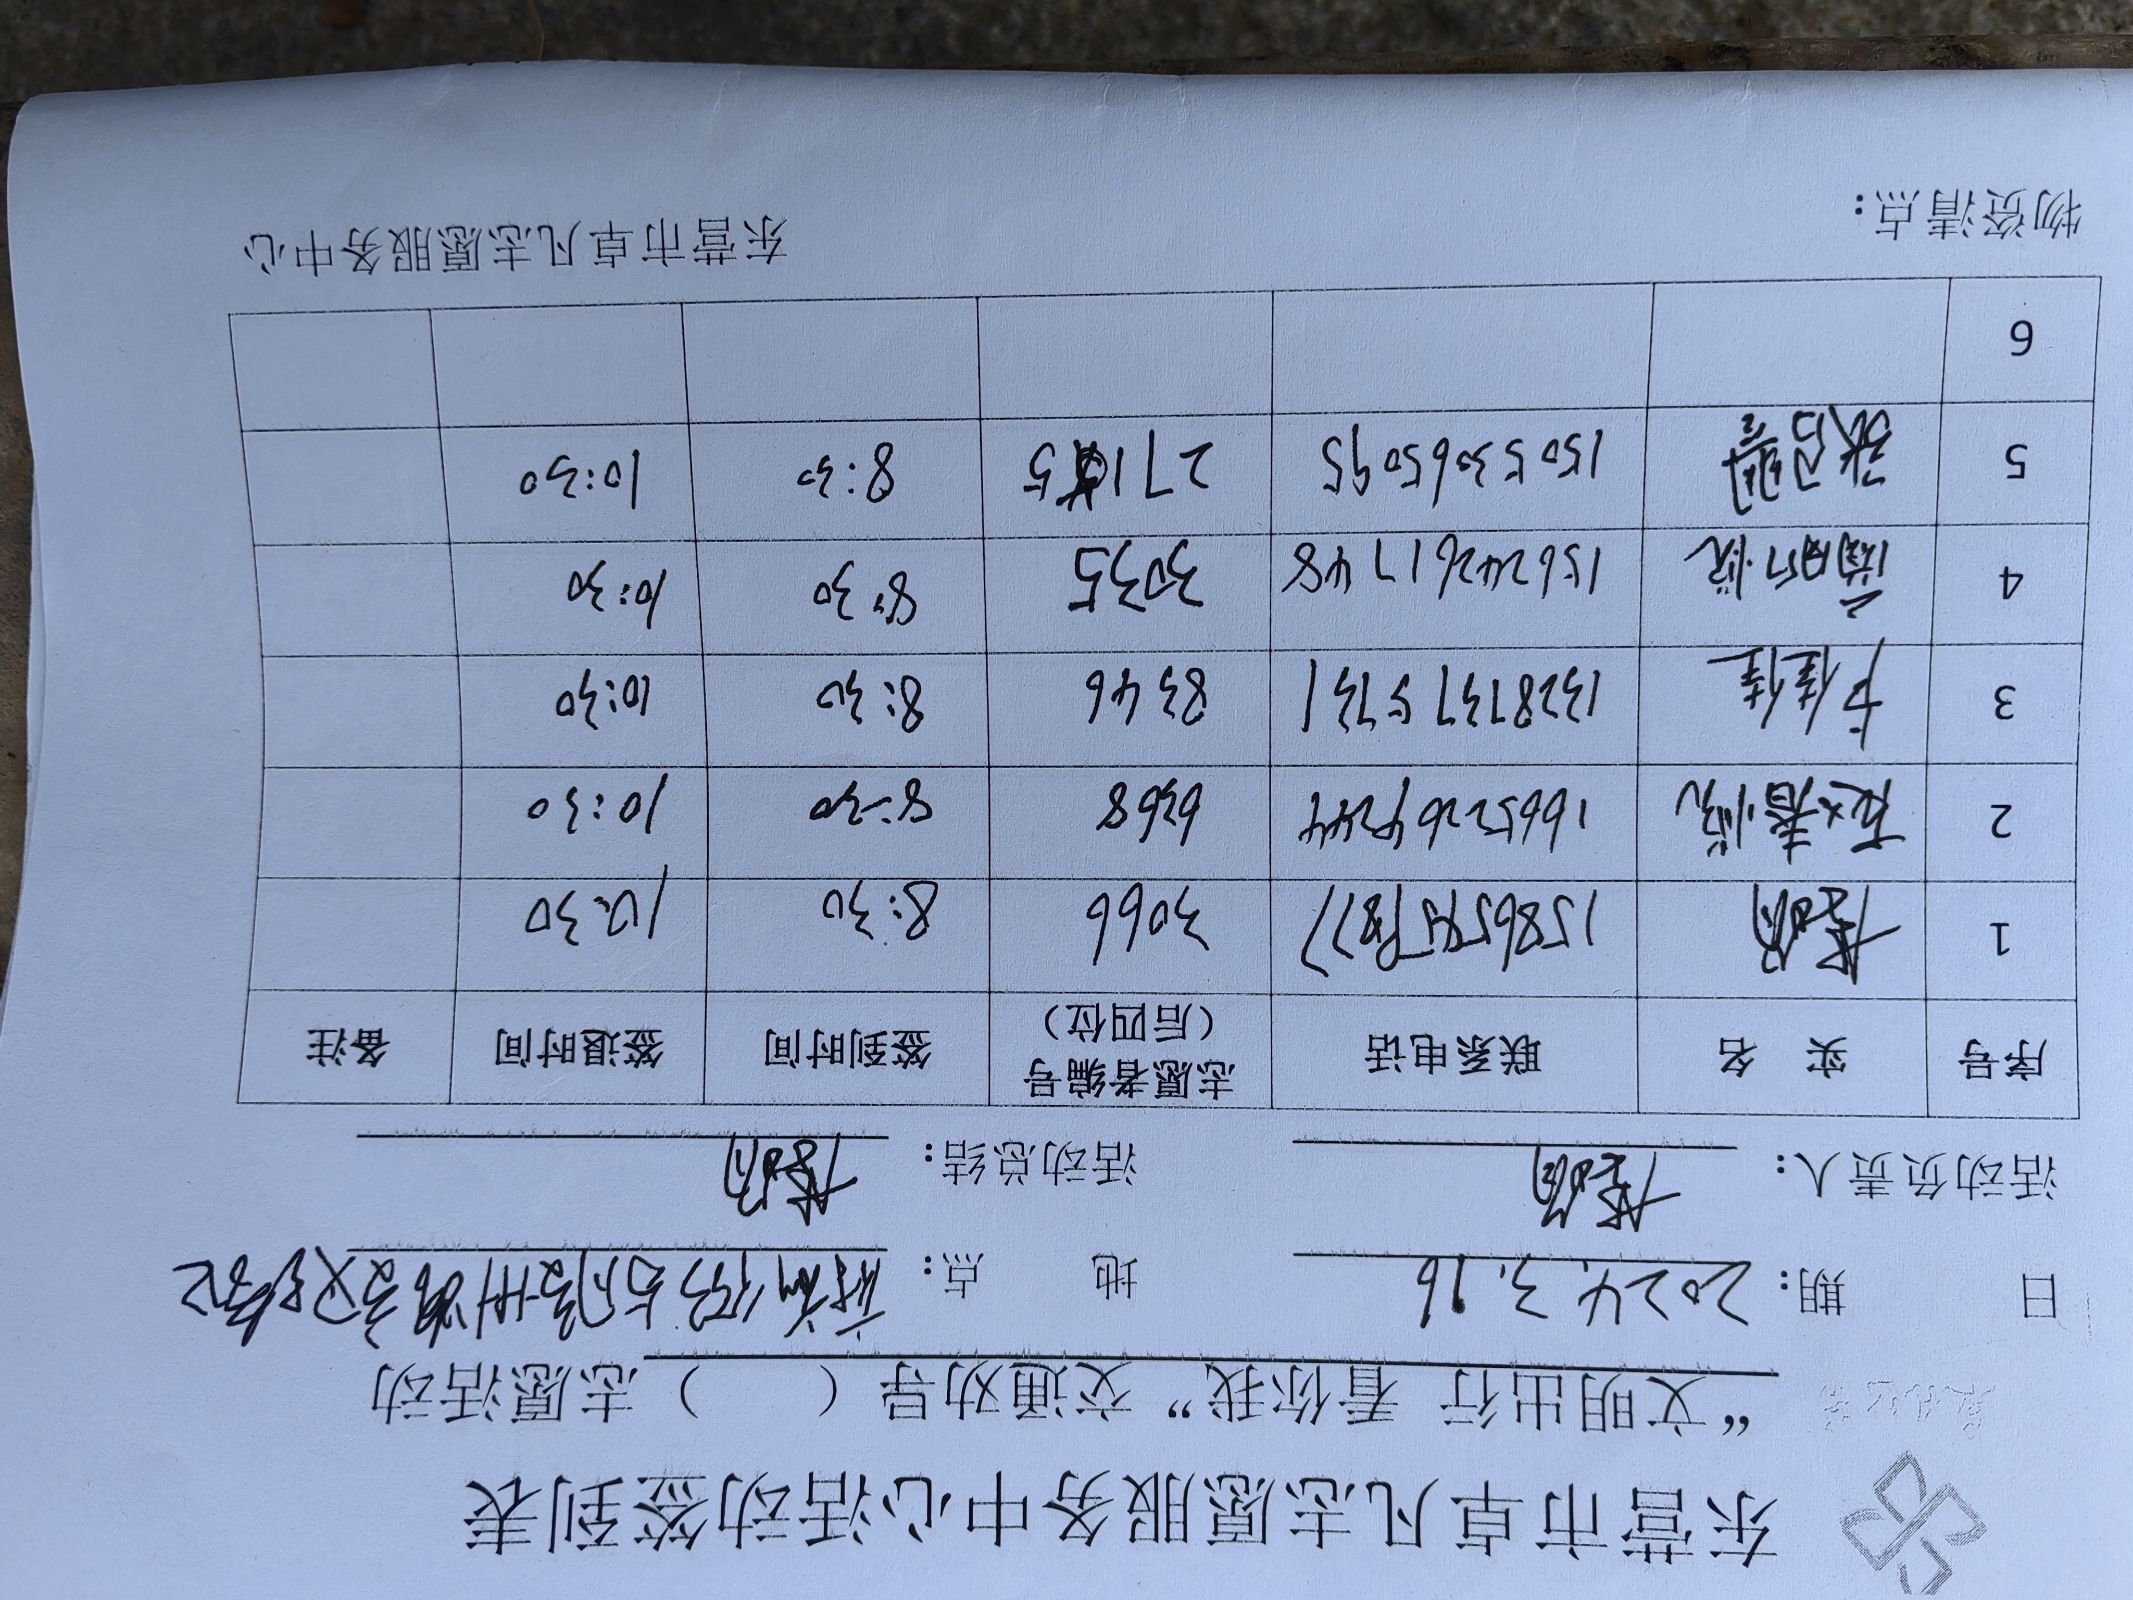 东营市卓凡志愿服务中心活动签到表
“文明出行 看你我”交通劝导（ ）志愿活动
日 期： 2024.3.16 地 点：
活动负责人： 活动总结：
序号 实 名 联系电话 志愿者编号（后四位） 签到时间 签退时间 备注
1 3066 8:30 10:30
2 16652264244 6368 8:30 10:30
3 卞佳佳 13287375731 8346 8:30 10:30
4 15624261748 3035 8:30 10:30
5 15053065095 8:30 10:30
6
物资清点： 东营市卓凡志愿服务中心